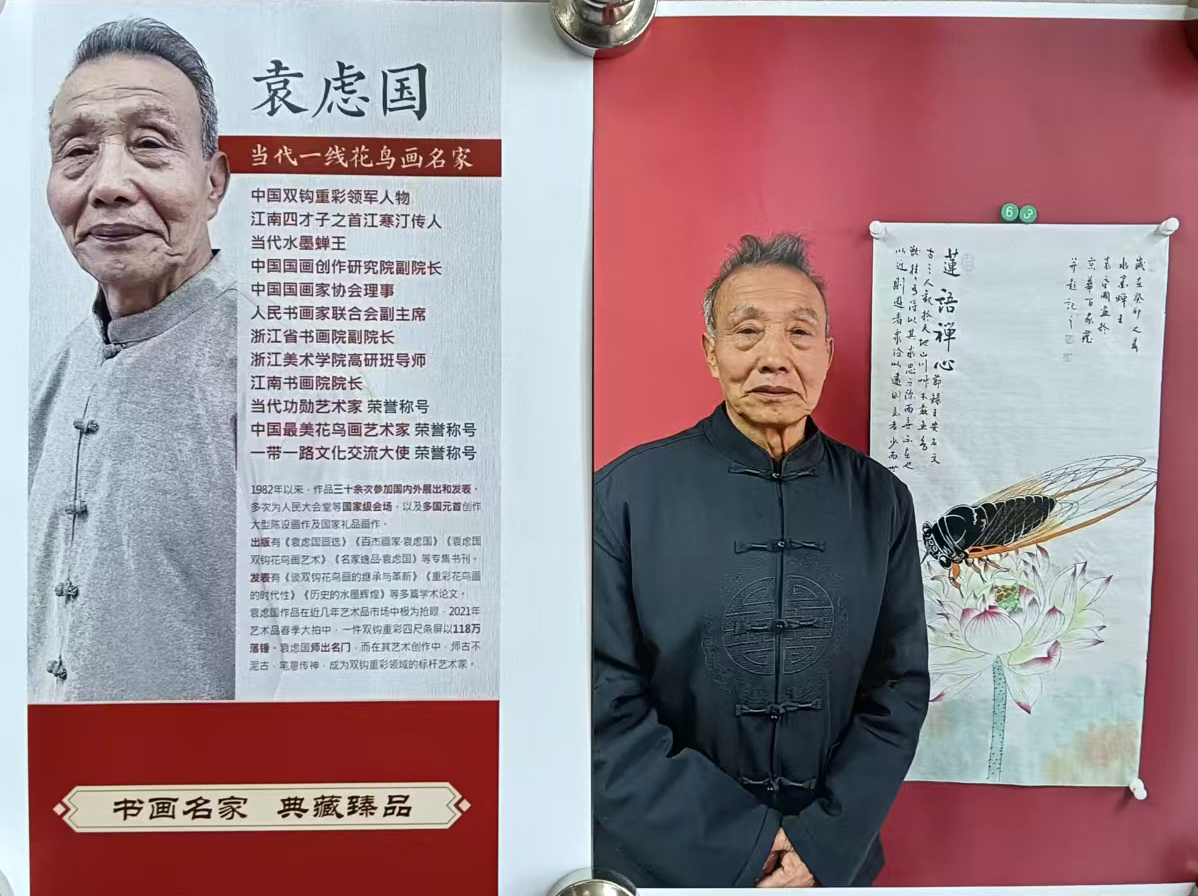 袁虑国
当代一线花鸟画名家
中国双钩重彩领军人物
江南四才子之首江寒汀传人
当代水墨蝉王
中国国画创作研究院副院长
中国国画家协会理事
人民书画家联合会副主席
浙江省书画院副院长
浙江美术学院高研班导师
江南书画院院长
当代功勋艺术家 荣誉称号
中国最美花鸟画艺术家 荣誉称号
一带一路文化交流大使 荣誉称号
1982年以来，作品三十余次参加国内外展出和发表，
多次为人民大会堂等国家级会场，以及多国元首创作
大型陈设画作及国家礼品画作。
出版有《袁虑国画选》《百杰画家·袁虑国》《袁虑国
双钩花鸟画艺术》《名家逸品·袁虑国》等专集书刊。
发表有《谈双钩花鸟画的继承与革新》《重彩花鸟画
的时代性》《历史的水墨辉煌》等多篇学术论文。
袁虑国作品在近几年艺术品市场中极为抢眼，2021年
艺术品春季大拍中，一件双钩重彩四尺条屏以118万
落锤。袁虑国师出名门，而在其艺术创作中，师古不
泥古，笔意传神，成为双钩重彩领域的标杆艺术家。
书画名家 典藏臻品
6 3
蓮语禅心
節録王安石文
古之人觀於天地山川草木蟲魚鳥
獸往往有得以其求思之深而無不在也
夫夷以近則遊者衆險以遠則至者少而世
歲在癸卯之春
水墨蟬王
袁虑國畫於
京華百泉苑
并題記之